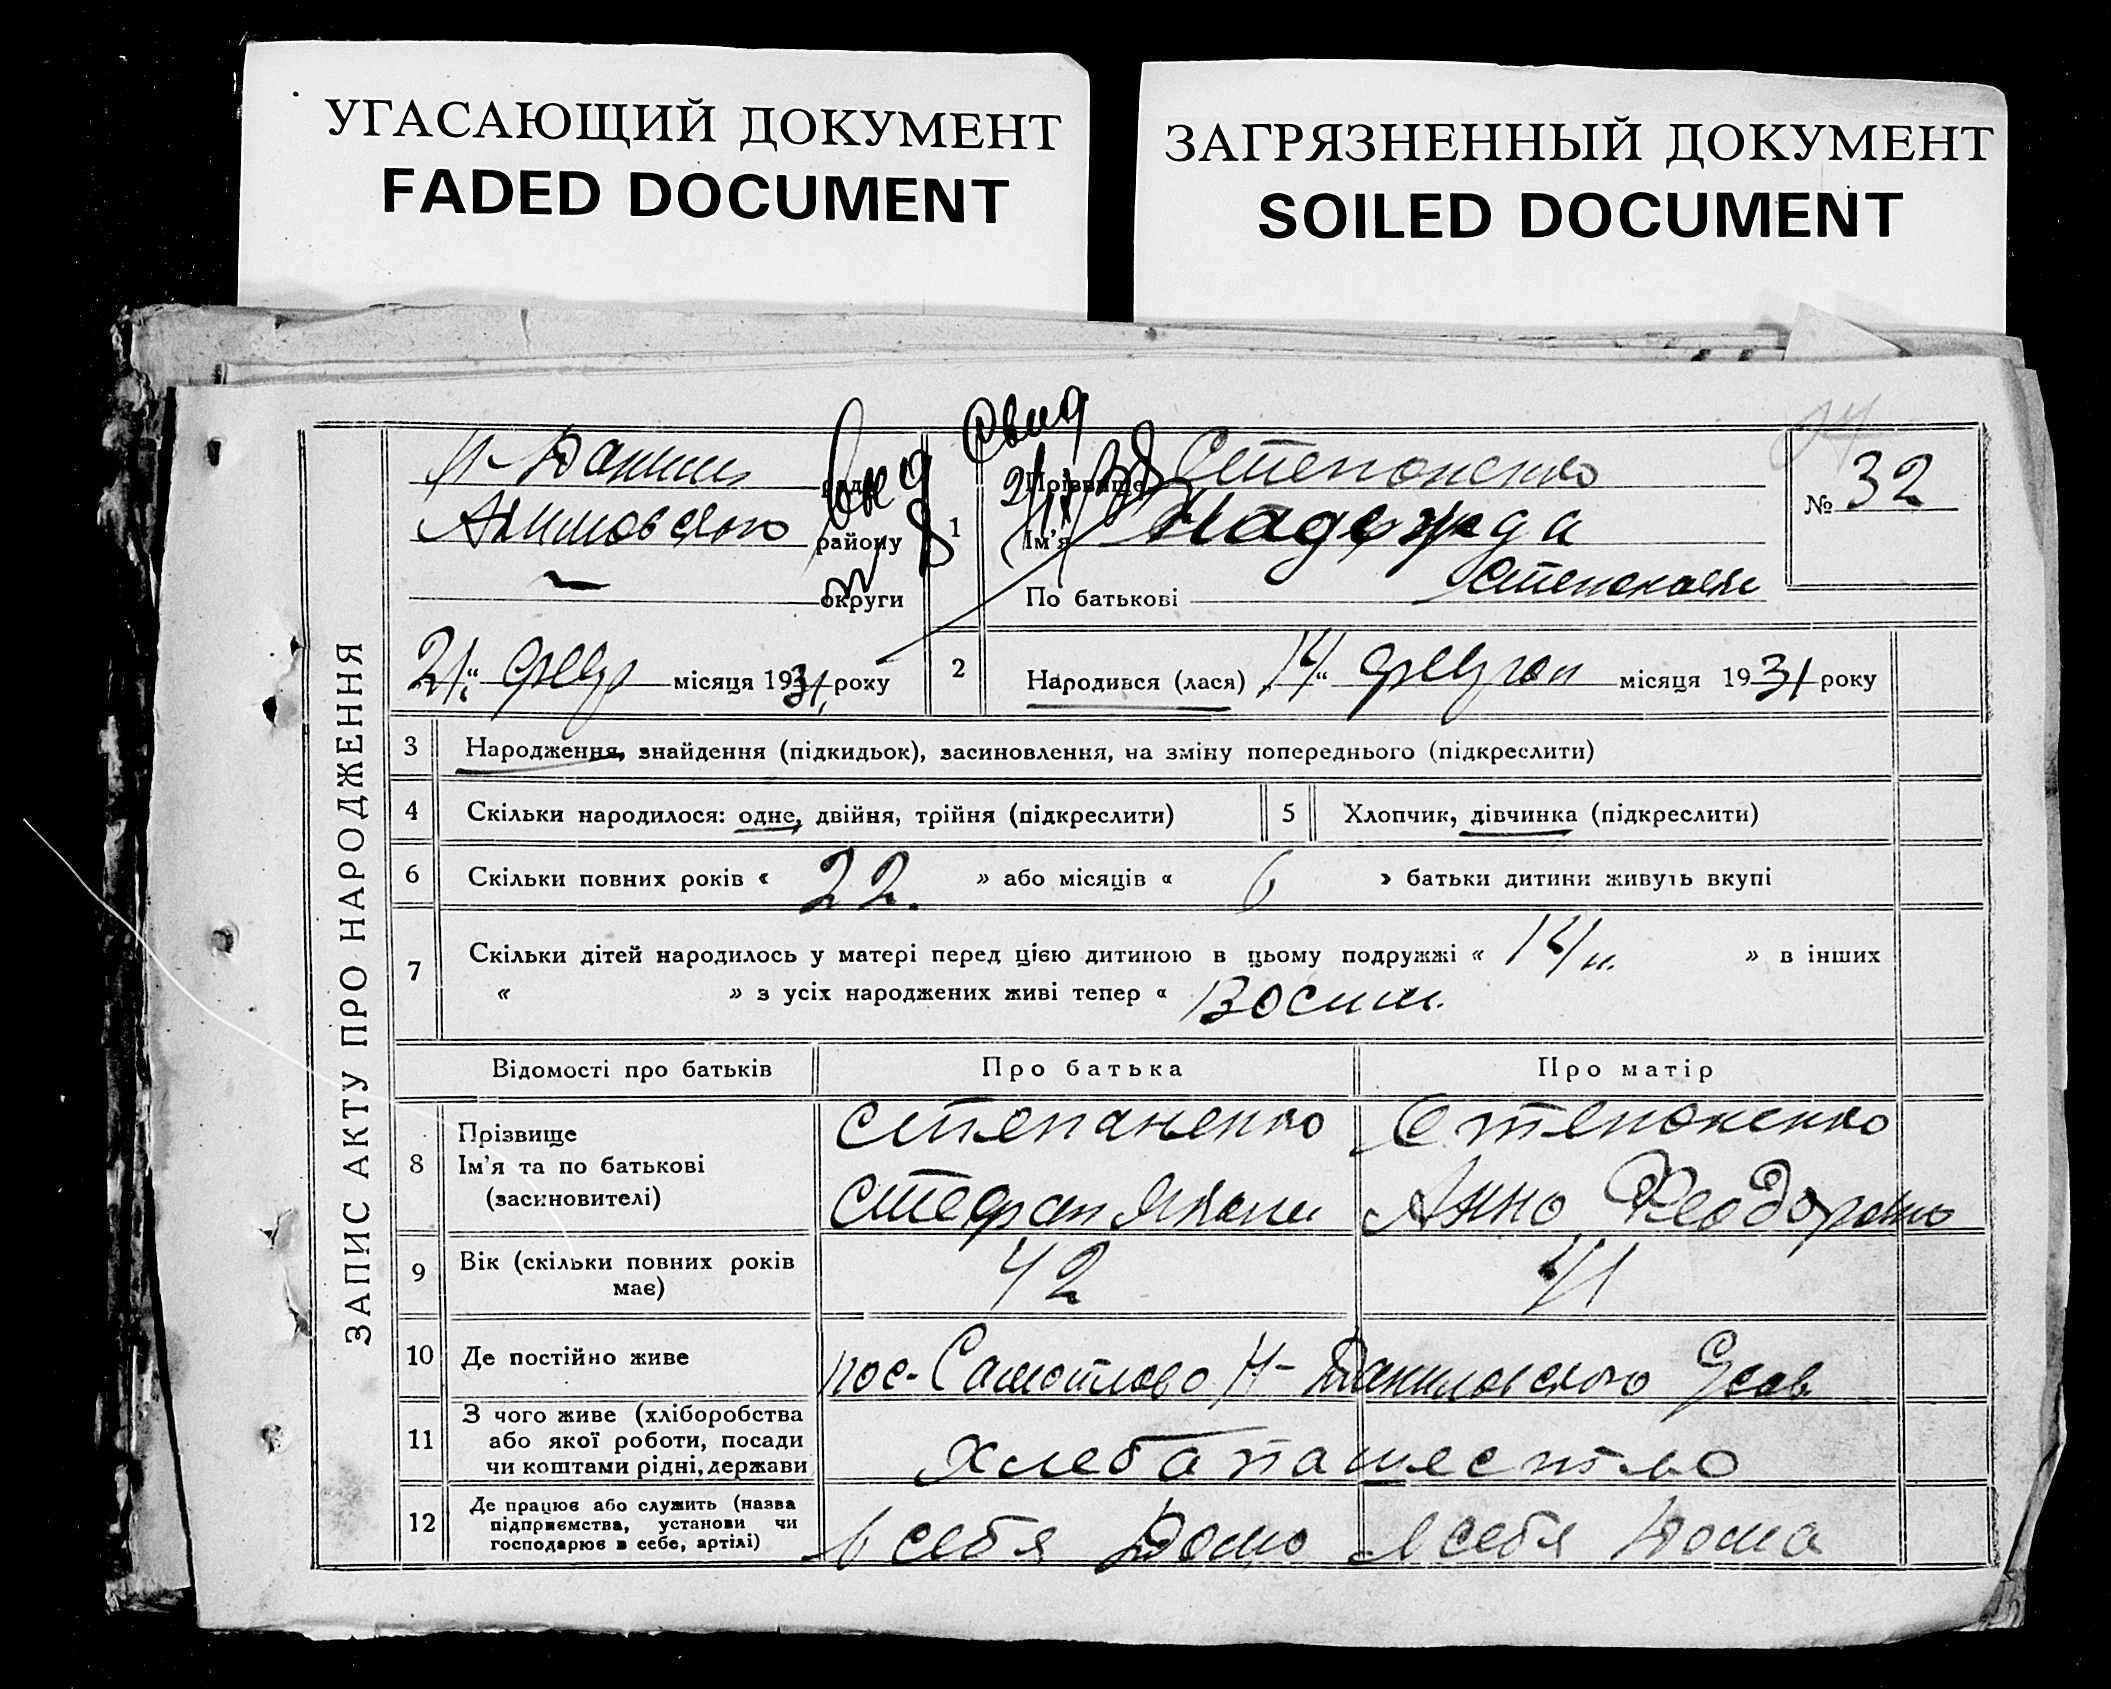 УГАСАЮЩИЙ ДОКУМЕНТ
FADED DOCUMENT
ЗАГРЯЗНЕННЫЙ ДОКУМЕНТ
SOILED DOCUMENT
ЗАПИС АКТУ ПРО НАРОДЖЕННЯ
ради
Акимовского району
округи
21 " февр місяця 1931 року
1
Прізвище Степоненко
Ім'я Надежда
По батькові
№ 32
2
Народився (лася) 14 " феврол місяця 1931 року
3 Народження, знайдення (підкидьок), засиновлення, на зміну попереднього (підкреслити)
4 Скільки народилося: одне, двійня, трійня (підкреслити)
5 Хлопчик, дівчинка (підкреслити)
6 Скільки повних років « 22. » або місяців « 6 » батьки дитини живуть вкупі
7 Скільки дітей народилось у матері перед цією дитиною в цьому подружжі « 14 » в інших
« » з усіх народжених живі тепер «
Відомості про батьків Про батька Про матір
8 Прізвище
Ім'я та по батькові
(засиновителі)
Степаненко Степоненко
Стефан Анно
9 Вік (скільки повних років
має)
42 41
10 Де постійно живе
пос-
11 З чого живе (хліборобства
або якої роботи, посади
чи коштами рідні, держави
хлебапашество
12 Де працює або служить (назва
підприємства, установи чи
господарює в себе, артілі)
в себя Домо в себя Дома